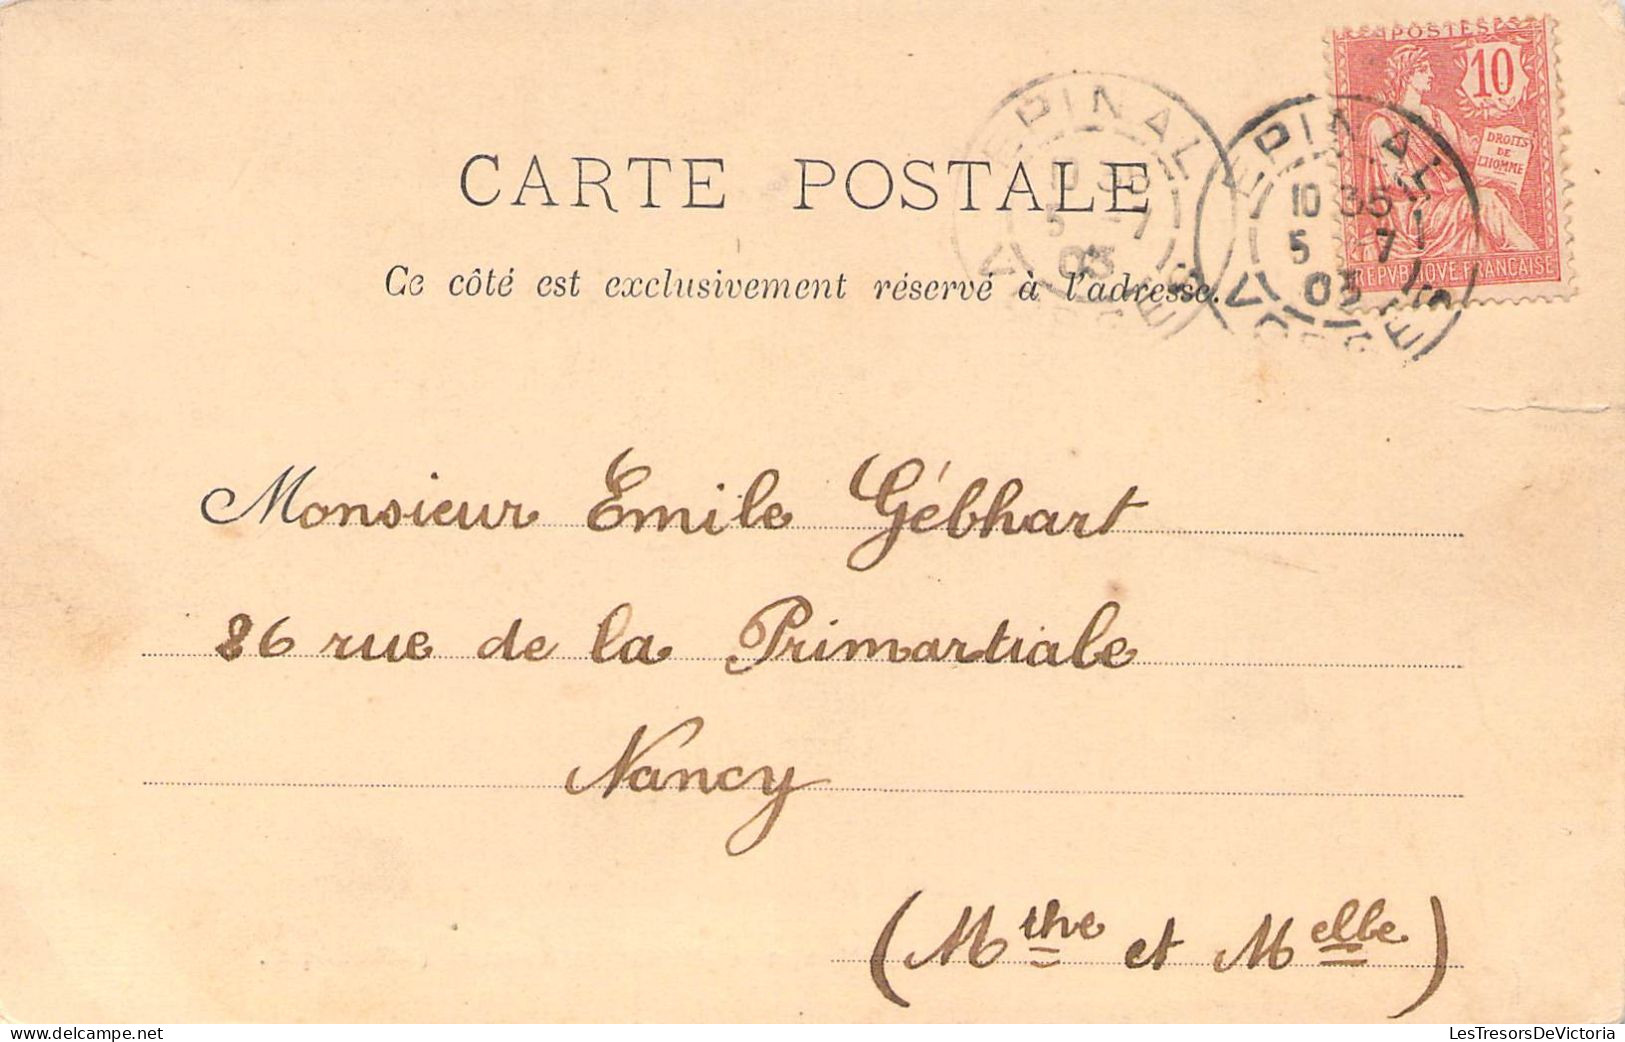 POSTES
10
DROITS
DE
L'HOMME
REPVBLIQVE FRANÇAISE
EPINAL
10 35
5 -7
03
VOSGES
EPINAL
10 35
5 -7
03
VOSGES
CARTE POSTALE
Ce côté est exclusivement réservé à l'adresse.
Monsieur Emile Gébhart
26 rue de la Primartiale
Nancy
(Mthe et Melle)
LesTresorsDeVictoria
delcampe.net